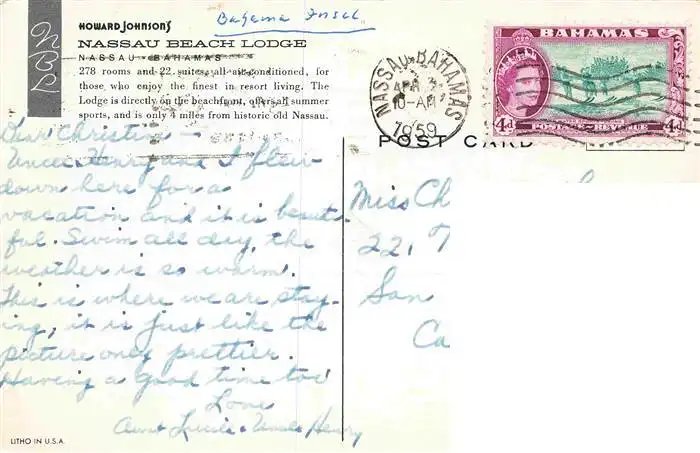 Bahama Insel
HOWARD JOHNSON'S
NASSAU BEACH LODGE
NASSAU - BAHAMAS
278 rooms and 22 suites, all air-conditioned, for
those who enjoy the finest in resort living. The
Lodge is directly on the beachfront, offers all summer
sports, and is only 4 miles from historic old Nassau.
NBL
BAHAMAS
4d
POSTAGE & REVENUE
4d
NASSAU BAHAMAS
10-AM
1959
POST CARD
Dear Christine
Uncle Henry and I flew
down here for a
vacation and it is beauti-
ful. Swim all day, the
weather is so warm.
This is where we are stay-
ing, it is just like the
picture only prettier.
Having a good time too
Love
Aunt Lucile & Uncle Henry
Miss Ch
22
San
Ca
LITHO IN U.S.A.